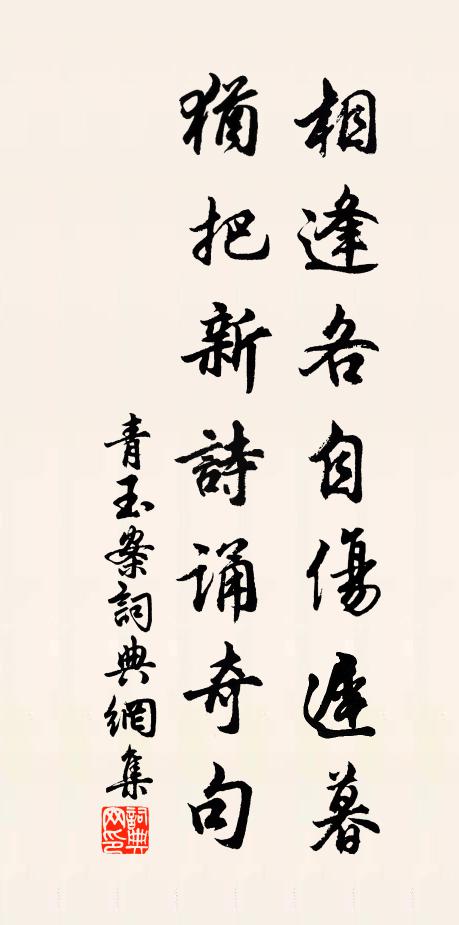 相逢各自傷遲暮
猶把新詩誦奇句
青玉案詞典網集
詞典網印